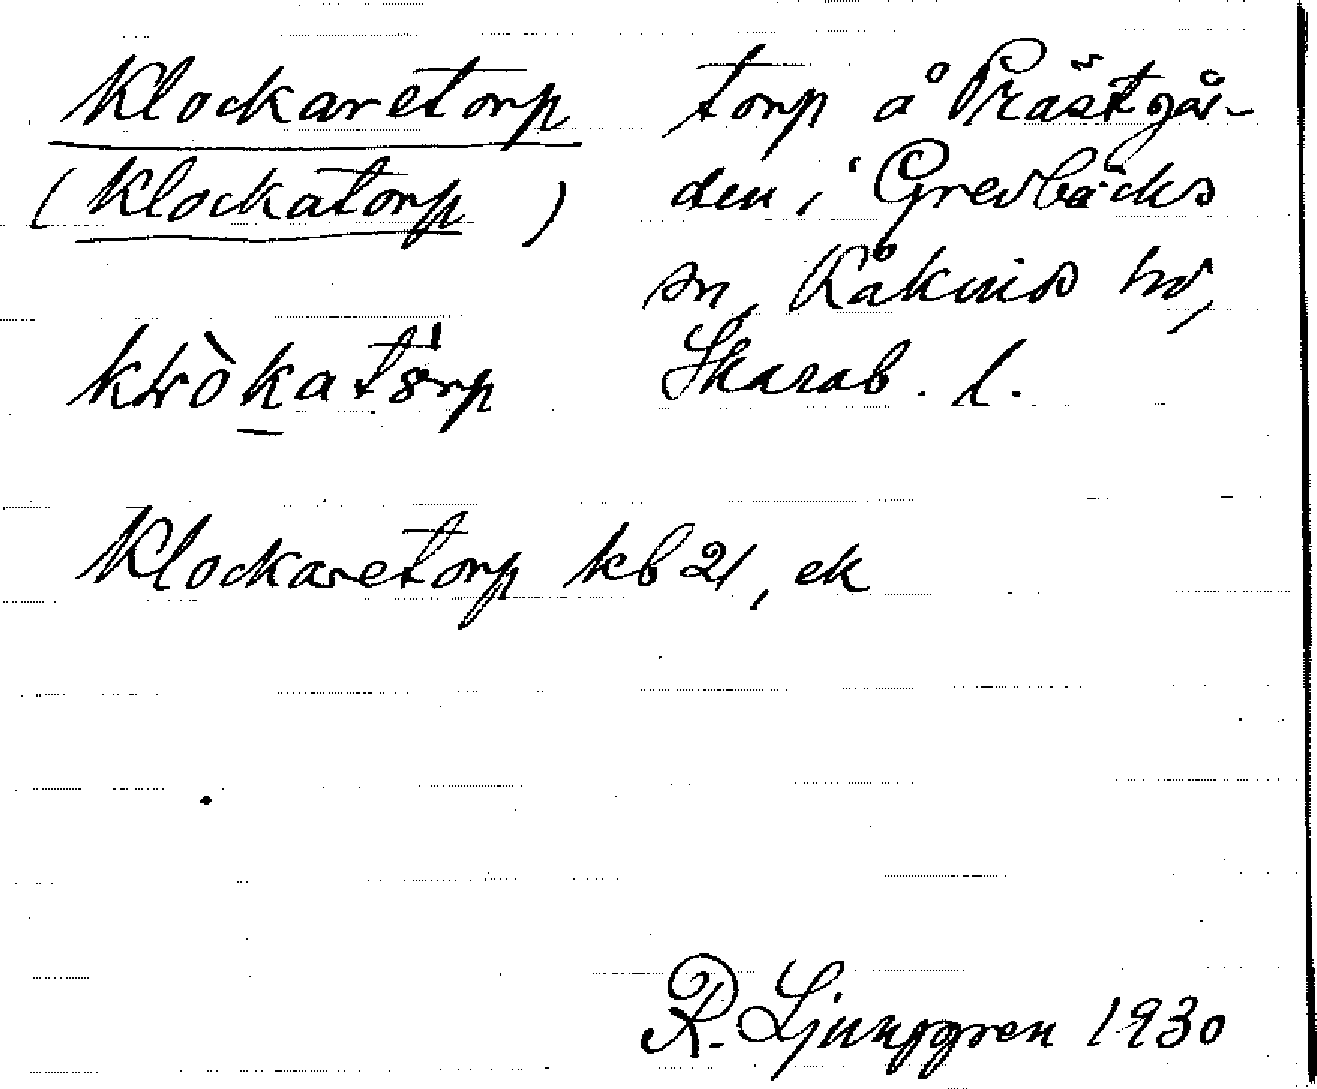 Klockaretorp
(Klockatorp)
torp å Prästgår-
den i Grevbäcks
sn, Kåkinds hd,
Skarab. l.
Klockaretorp kb 21, ek
R. Ljunggren 1930